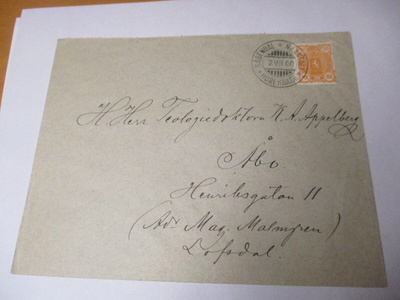 NÅDENDAL
2.VIII.00
H Herr Teologiedoktorn K. A. Appelberg
Åbo.
Henriksgatan 11
(Adr Mag. Malmgren)
Lofsdal